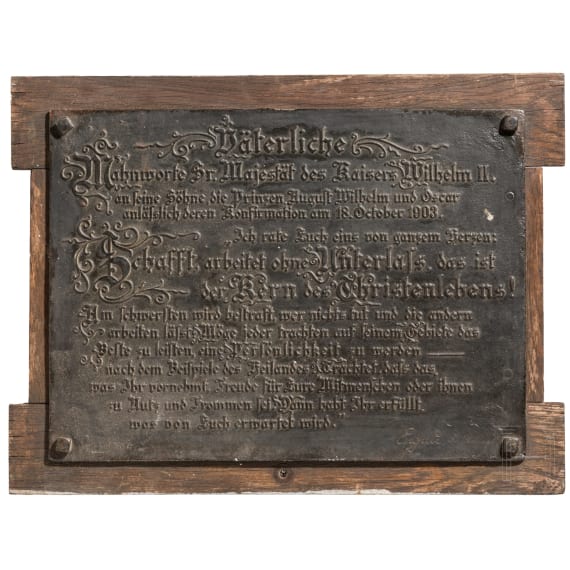 Väterliche
Mahnworte Sr. Majestät des Kaisers Wilhelm II.
an seine Söhne die Prinzen August Wilhelm und Oscar
anlässlich deren Konfirmation am 18. October 1903.
Ich rate Euch eins von ganzem Herzen:
Schafft, arbeitet ohne Unterlass, das ist
der Kern des Christenlebens!
Am schwersten wird bestraft, wer nichts tut und die andern
arbeiten lässt. Möge jeder trachten auf seinem Gebiete das
Beste zu leisten, eine Persönlichkeit zu werden
nach dem Beispiele des Heilandes. Trachtet, daß das,
was Ihr vornehmt, Freude für Eure Mitmenschen oder ihnen
zu Nutz und Frommen sei. Dann habt Ihr erfüllt,
was von Euch erwartet wird."